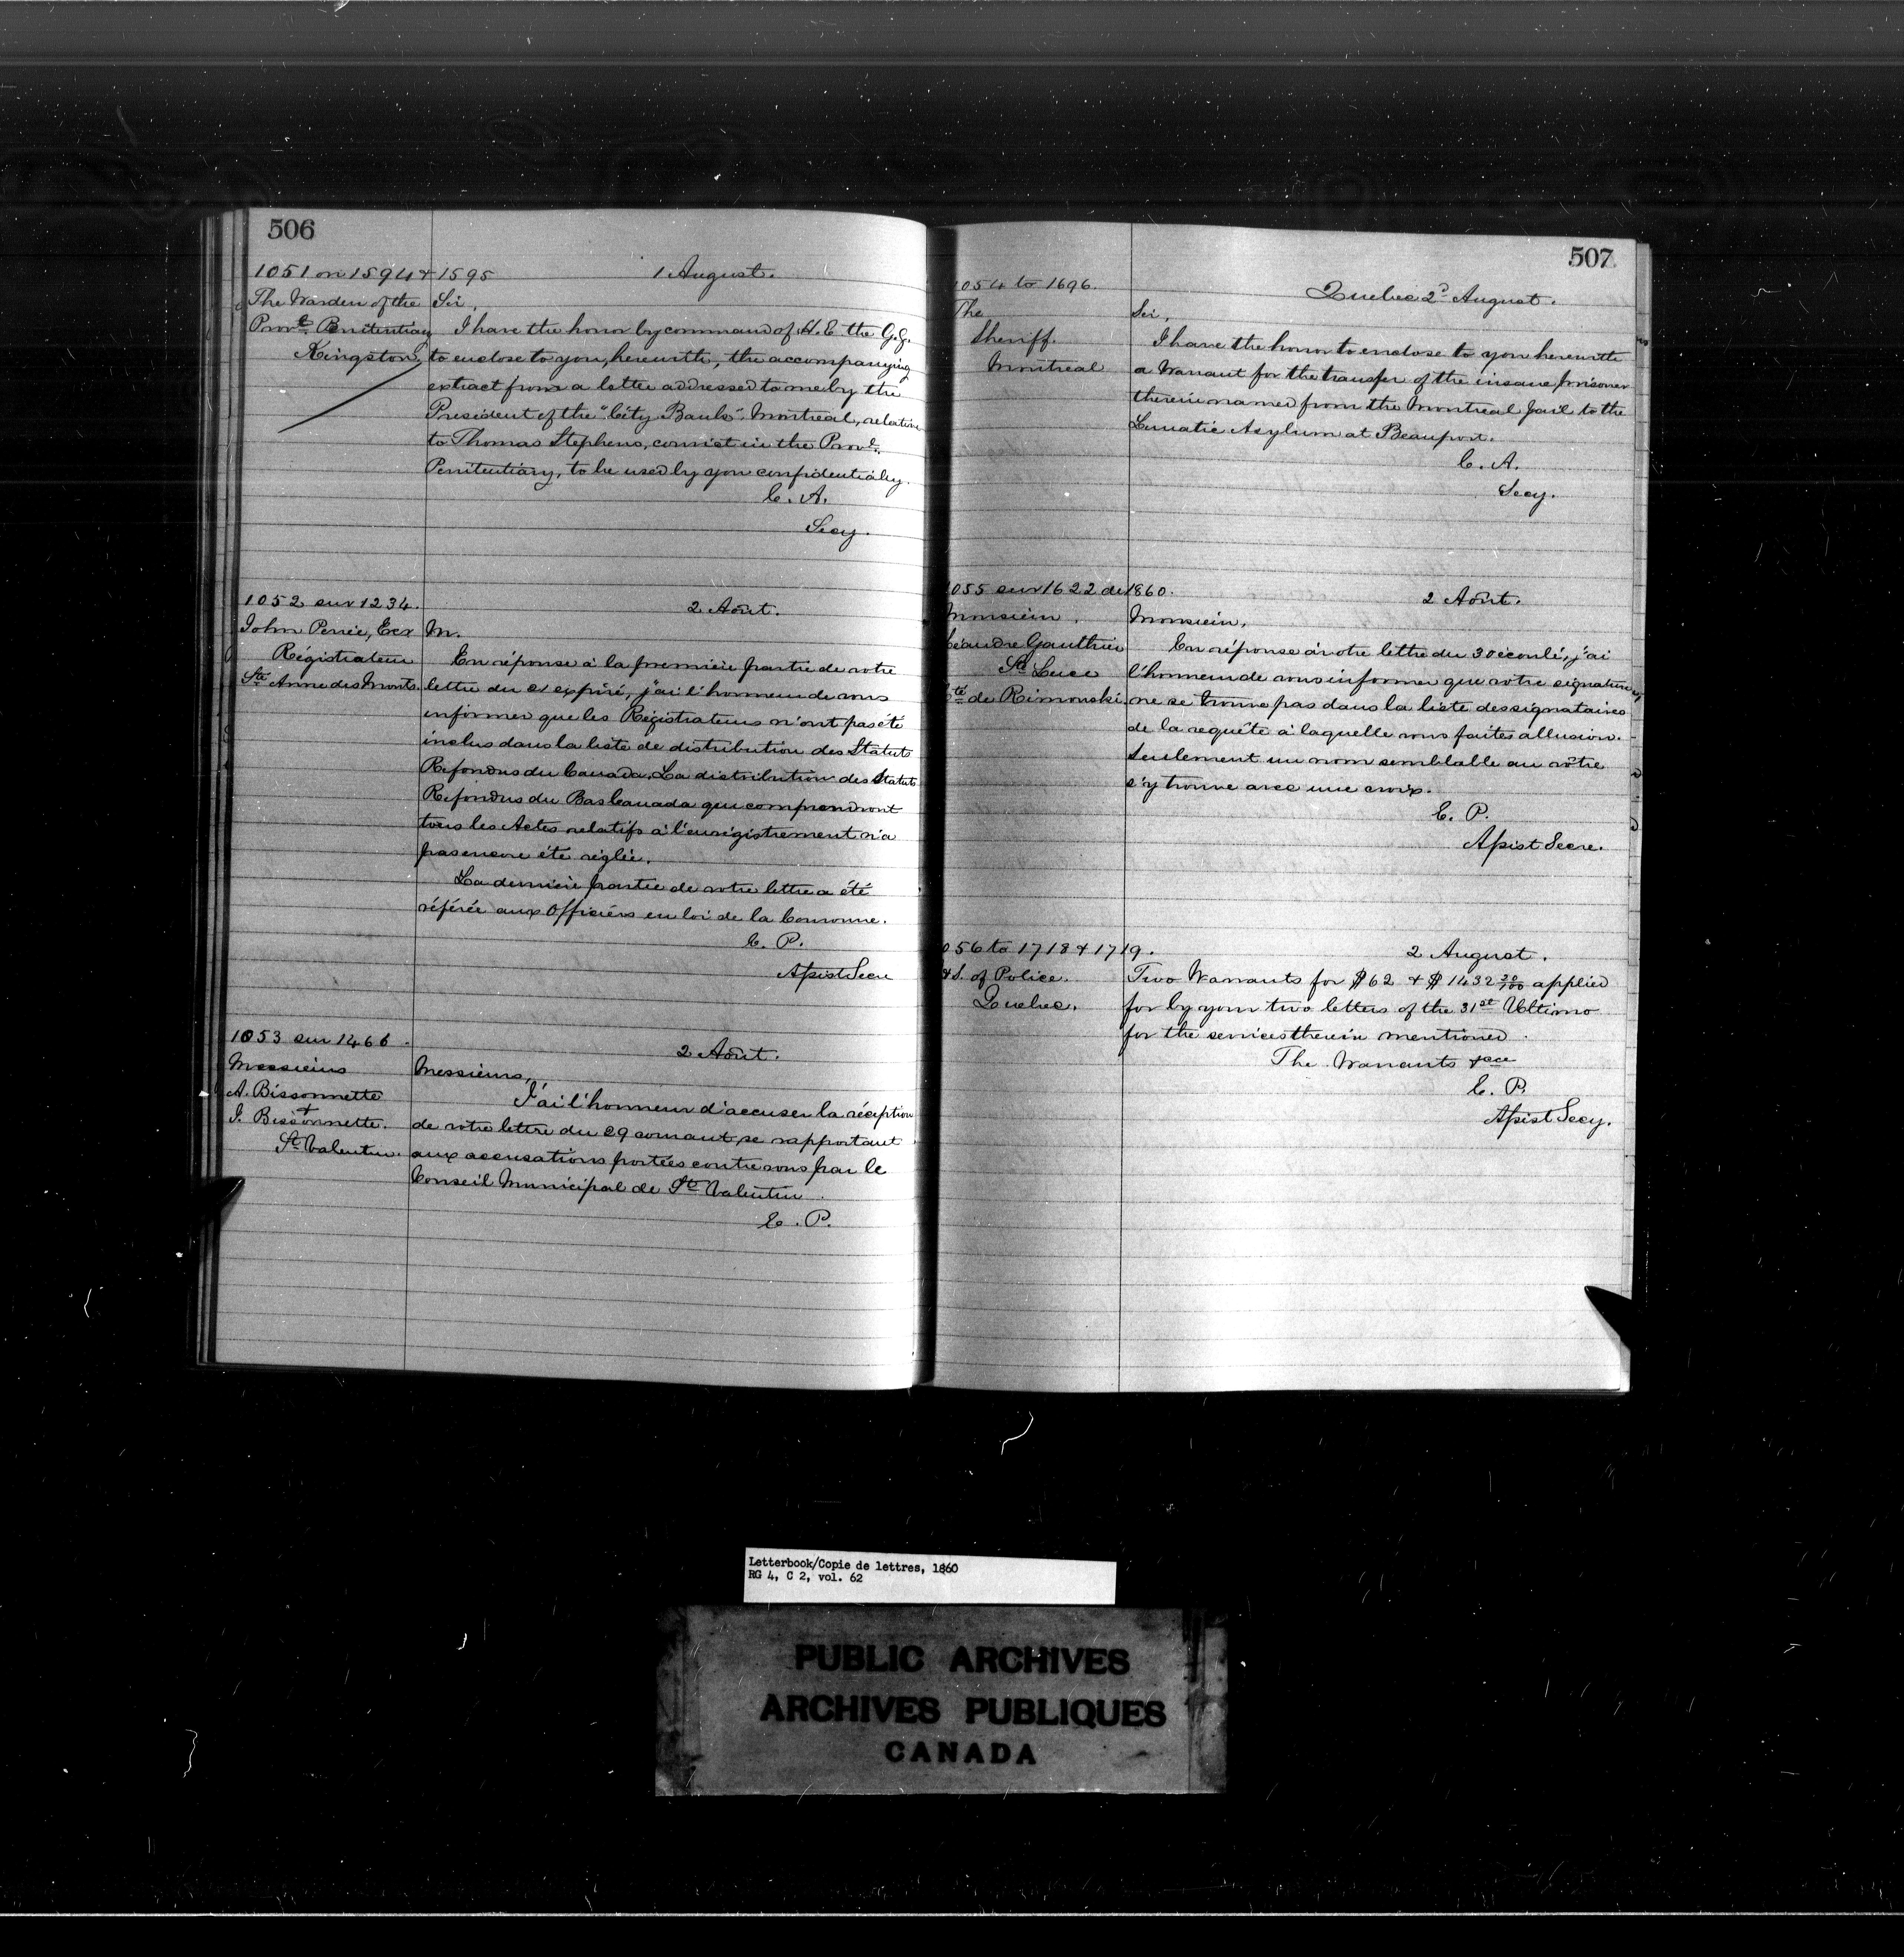 506
1051 on 1594 & 1595
1 August.
The Warden of the
Provl. Penitentiary
Kingston,
Sir,
I have the honor by command of H. E. the G. G.
to enclose to you, herewith, the accompanying
extract from a letter addressed to me by the
President of the "City Bank" Montreal, relative
to Thomas Stephens, convict in the Provl.
Penitentiary, to be used by you confidentially.
C. A.
Secy.
1052 sur 1234.
2 Août.
John Perrée, Ecr
Régistrateur
Ste Anne des Monts.
M.
En réponse à la première partie de votre
lettre du expiré, j'ai l'honneur de vous
informer que les Régistrateurs n'ont pas été
inclus dans la liste de distribution des Statuts
Refondus du Canada. La distribution des Statuts
Refondus du Bas Canada qui comprendront
tous les Actes relatifs à l'enregistrement n'a
pas encore été réglée.
La dernière partie de votre lettre a été
référée aux Officiers en loi de la Couronne.
E. P.
Assist Secre
1053 sur 1466
2 Août.
Messieurs
A. Bissonnette
&
J. Bissonnette.
St Valentin.
Messieurs,
J'ai l'honneur d'accuser la réception
de votre lettre du 29 courant se rapportant
aux accusations portées contre vous par le
Conseil Municipal de St Valentin.
E. P.
507
1054 to 1696.
Quebec 2d August.
The
Sheriff.
Montreal
Sir,
I have the honor to enclose to you herewith
a Warrant for the transfer of the insane prisoner
therein named from the Montreal Jail to the
Lunatic Asylum at Beauport.
C. A.
Secy.
1055 sur 1622 de 1860.
2 Août.
Monsieur
Léandre Gauthier
Ste Luce
Cté de Rimouski.
Monsieur,
En réponse à votre lettre du 30 écoulé, j'ai
l'honneur de vous informer que votre signature
ne se trouve pas dans la liste des signataires
de la requête à laquelle vous faites allusion.
Seulement un nom semblable au vôtre
s'y trouve avec une croix.
E. P.
Assist Secre.
056 to 1718 & 1719.
2 August.
&S. of Police.
Quebec.
Two Warrants for $62 & $1432 20/100 applied
for by your two letters of the 31st Ultimo
for the services therein mentioned.
The Warrants &ca
E. P.
Assist Secy.
Letterbook/Copie de lettres, 1860
RG 4, C 2, vol. 62
PUBLIC ARCHIVES
ARCHIVES PUBLIQUES
CANADA